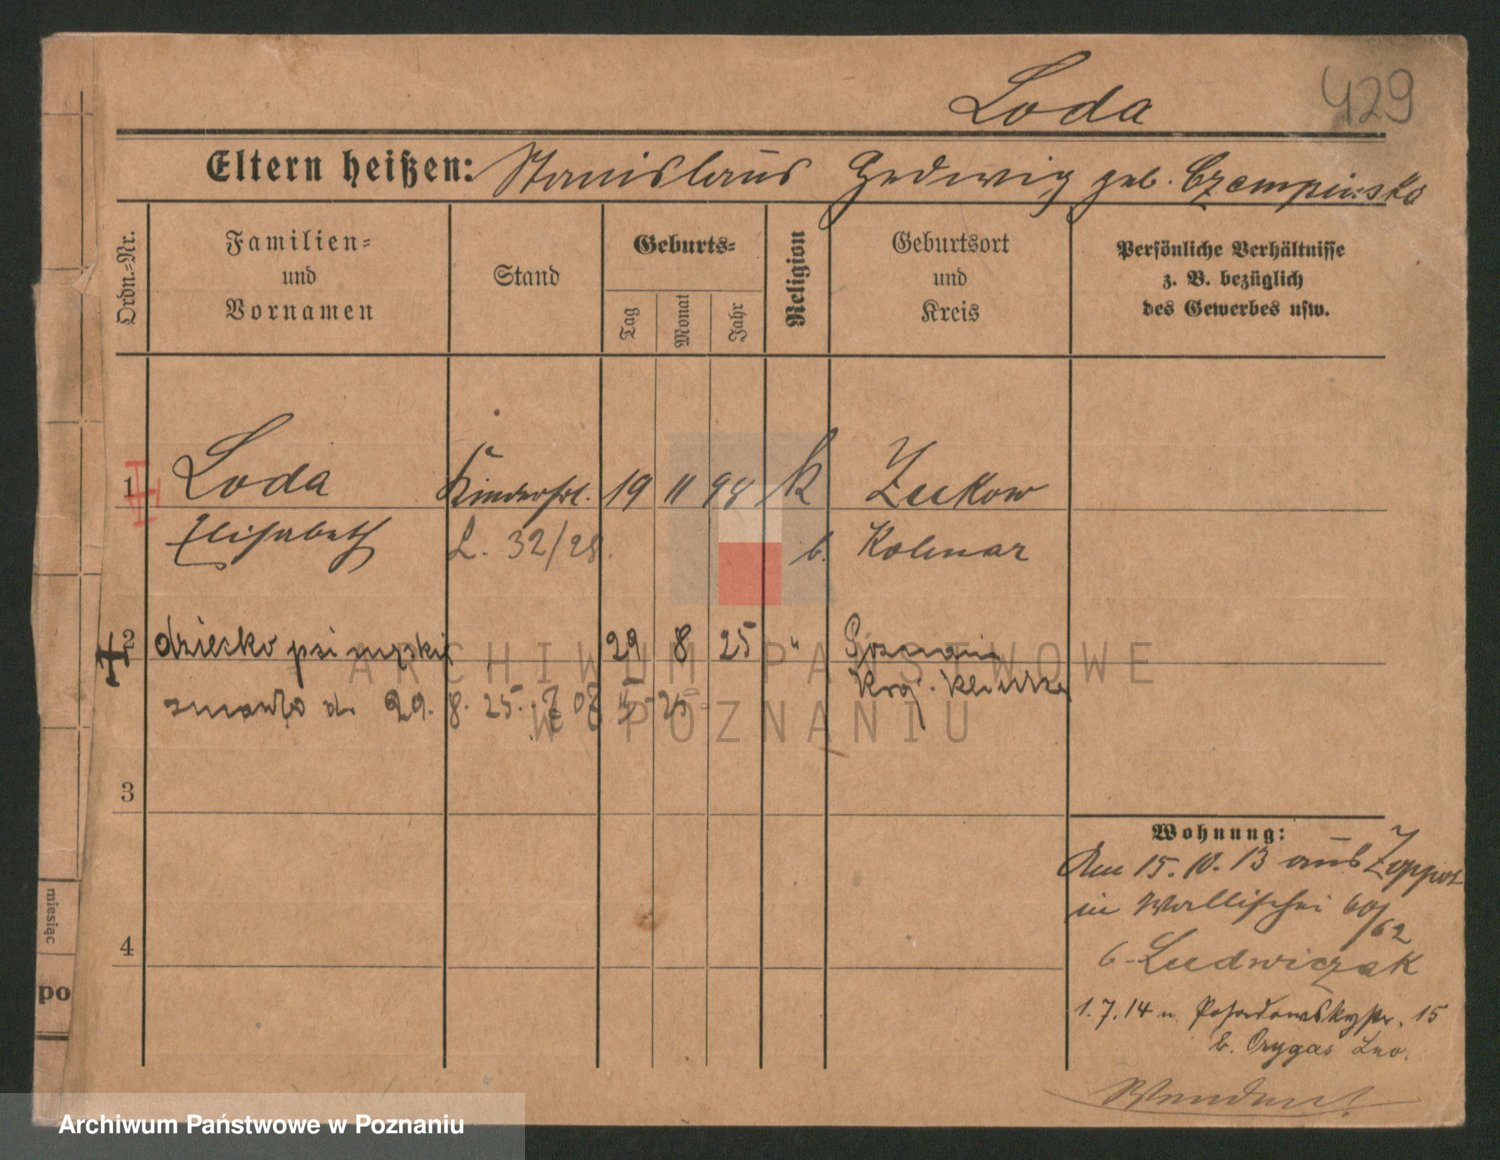 Loda
429
Eltern heißen: Stanislaus Hedwig geb. Czempinska
Ordn.-Nr.
Familien-
und
Vornamen
Stand
Geburts-
Tag
Monat
Jahr
Religion
Geburtsort
und
Kreis
Persönliche Verhältnisse
z. B. bezüglich
des Gewerbes usw.
1 Loda Kinderfrl. 19 11 94 k Zukow
Elisabeth L. 32/28. b. Kolmar
2 dziecko płci męskiej 29 8 25 " Poznaniu
zmarło dn 29. 8. 25.
3
4
Wohnung:
Am 15. 10. 13 aus Zoppot
in Wallischei 60/62
b. Ludwiczak
1. 7. 14 n. Posadowskystr. 15
b. Orygas
miesiąc
po
ARCHIWUM PAŃSTWOWE
W POZNANIU
Archiwum Państwowe w Poznaniu